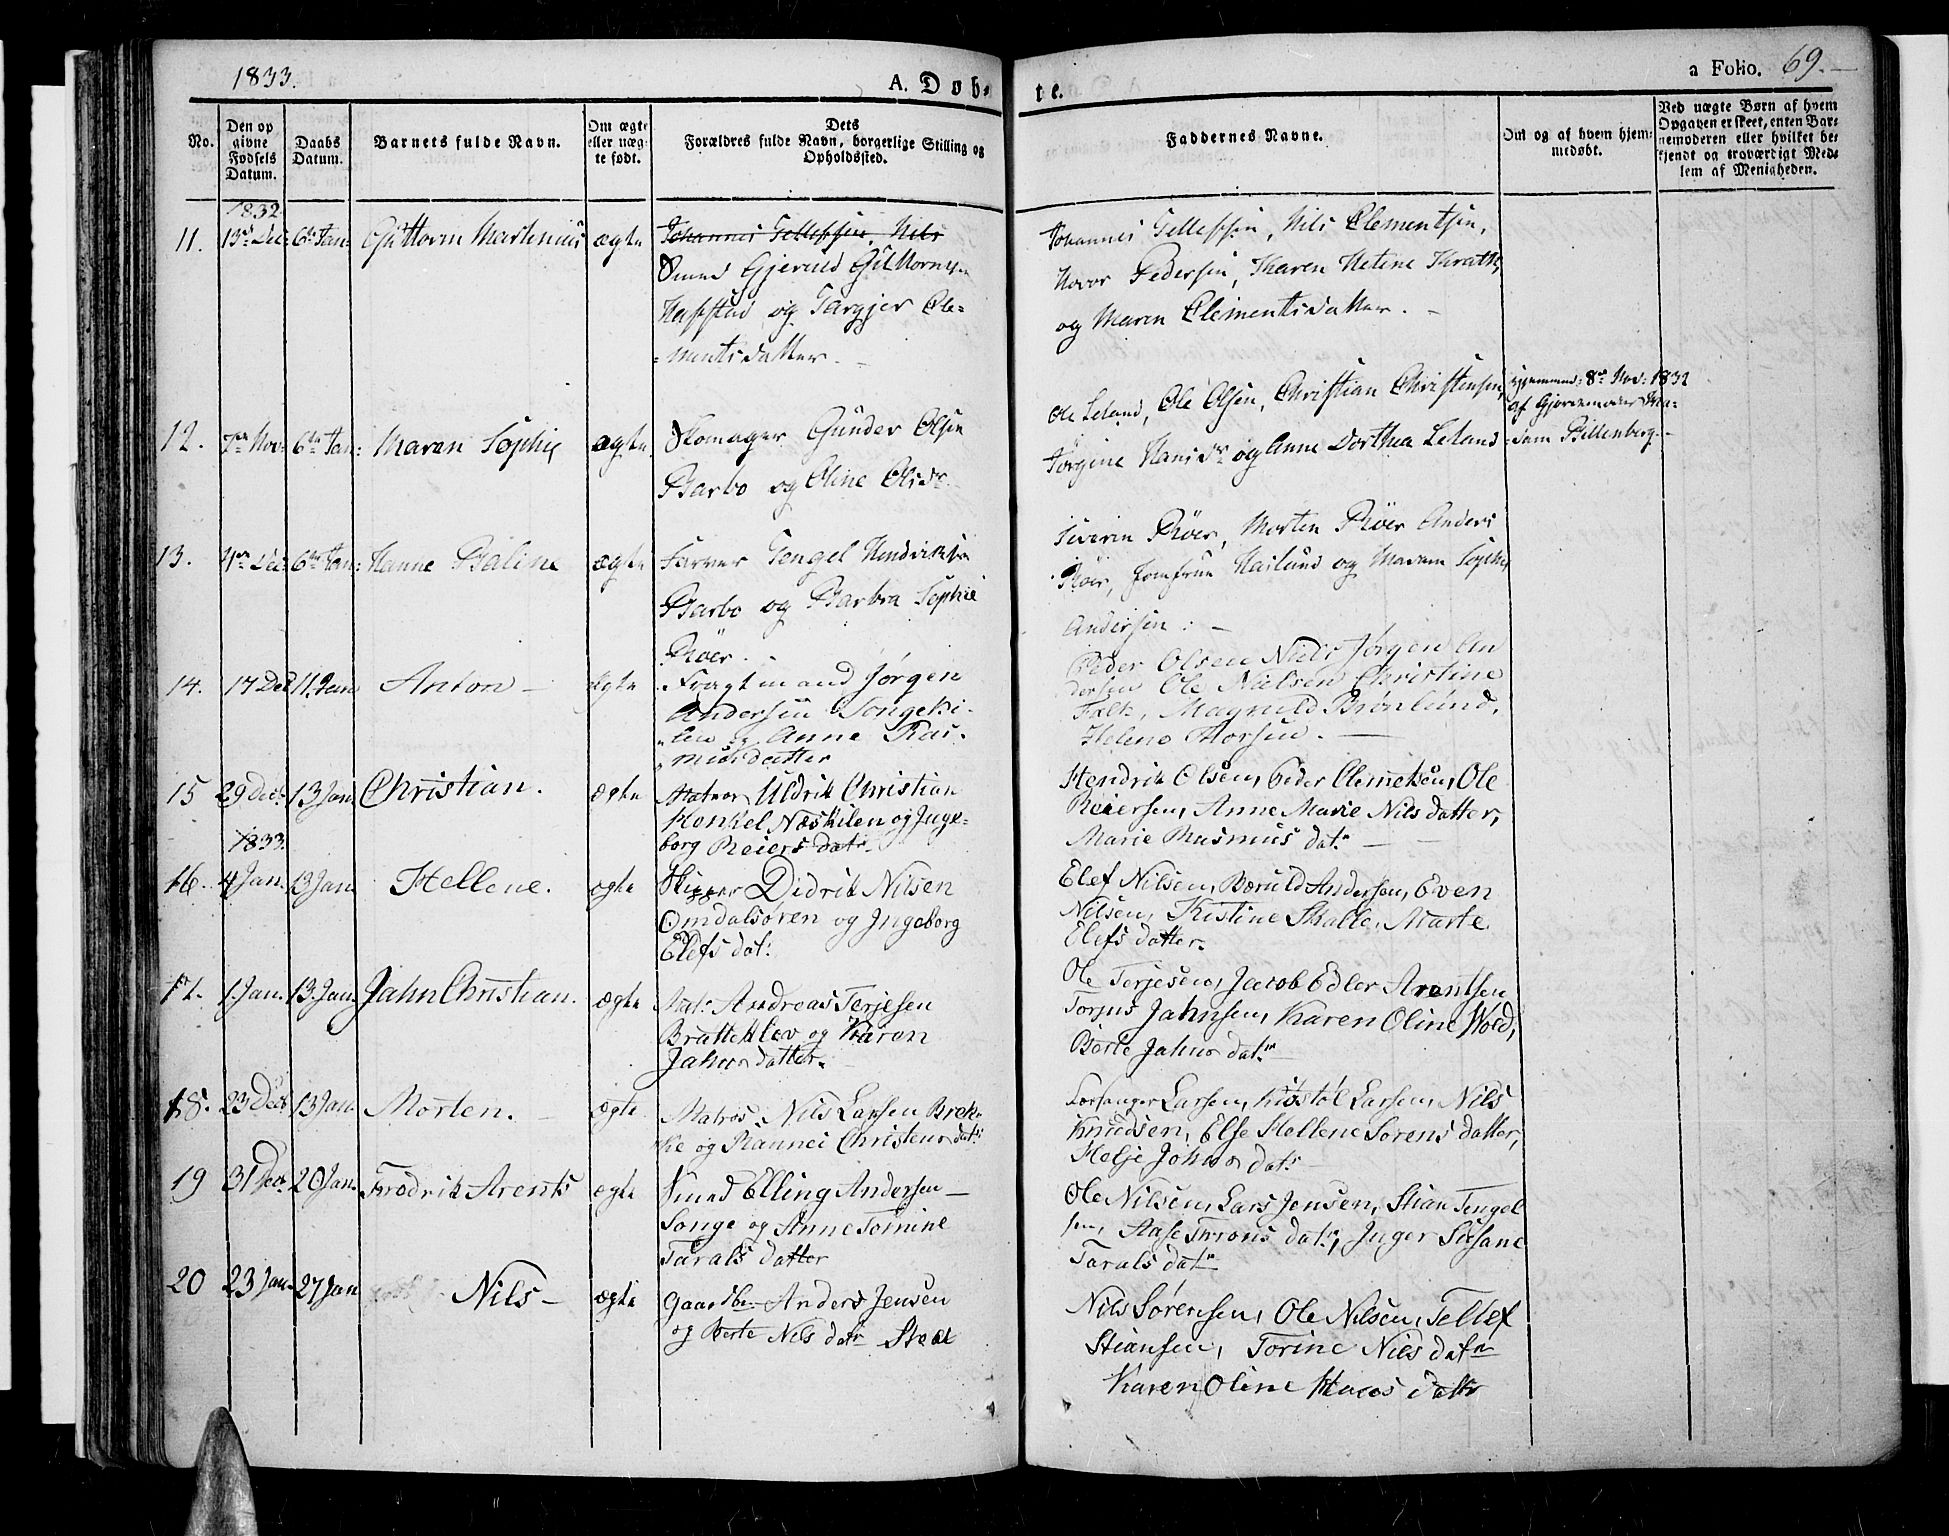 1833.
A. Døb-
te.
a Folio. 69.
No.
Den op
givne
Fødsels
Datum.
Daabs
Datum.
Barnets fulde Navn.
Om ægte
eller uæg-
te født.
Dets
Forældres fulde Navn, borgerlige Stilling og
Opholdssted.
Faddernes Navne.
Om og af hvem hjem-
medøbt.
Ved uægte Børn af hvem
Opgaven er skeet, enten Bar-
nemoderen eller hvilket be-
kjendt og troværdigt Med-
lem af Menigheden.
1832
11. 13de Dec: 6te Jan: Guttorm Martinius ægte
Johannes Tellefsen, Nils
Smed Gjeruld Guttormsen
Hafstad og Targjer Cle-
mentsdatter.
Johannes Tellefsen, Nils Clementsen,
Hovor Pedersen, Karen
og Maren Clementsdatter.
12. 7de Nov: 6te Jan: Maren Sophie ægte
Skomager Gunder Olsen
Barbo og Oline Olsdr.
Ole Leland, Ole Olsen, Christian Christensen,
Jørgine Hansdr og Anne Dorthea Leland
hjemmed: 8de Nov: 1832
af Gjordemoder Ma-
dam Billenberg.
13. 6te Jan: Hanne Baline ægte
Farver Tengel Hendriksen
Barbo og Barbra Sophie
Røer.
Severin Røer, Morten Røer Anders
Røer, Jomfrue Haslund og Madam Sophie
Andersen.
14. 17 Dec 11. Jan Anton ægte
Fragtmand Jørgen
Andersen Songeki-
len og Anne Ras-
musdatter
Peder Olsen Niels Jørgen An
dersen Ole Nielsen Christine
Falk, Magnild Brønlund,
Helene Morsen.
15 29 Decb. 13 Jan. Christian. ægte
Matros Uldrik Christian
Henkel Næskilen og Inge-
borg Reiers datr.
Hendrik Olsen, Peder Clemetsen, Ole
Reiersen, Anne Marie Nils datter,
Marie Rasmus datr.
1833.
16. 4 Jan. 13 Jan. Hellene. ægte
Skipper Didrik Nilsen
Omdalsøren og Ingeborg
Elefs dat:
Elef Nilsen, Bæruld Andersen, Even
Nilsen, Kistine Skalle, Marte
Elefs datter.
17. 1. Jan. 13. Jan. Jahn Christian. ægte
Mat: Andreas Terjesen
Bratteklev og Karen
Jahns datter.
Ole Terjesen, Jacob Edler Arentsen
Torjus Jahnsen, Karen Oline Wold,
Berte Jahns datr.
18. 23 Decb 13 Jan. Morten. ægte
Matros Nils Larsen Brek-
ke og Rannei Christens datr
Forsanger Larsen, Kistol Larsen, Nils
Knudsen, Else Hellene Sørens datter,
Helje Johns datr
19 31 Decb. 20 Jan. Fredrik Arents ægte
Smed Elling Andersen
Songe og Anne Tomine
Tarals datter
Ole Nilsen, Lars Jensen, Stian Tengel
sen, Aase Throns datr, Inger Susane
Tarals datr
20 23 Jan. 27 Jan Nils ægte
Gaardbr. Anders Jensen
og Berte Nils datr
Nils Sørensen, Ole Nilsen, Tellef
Stiansen, Torine Nils datr
Karen Oline datter